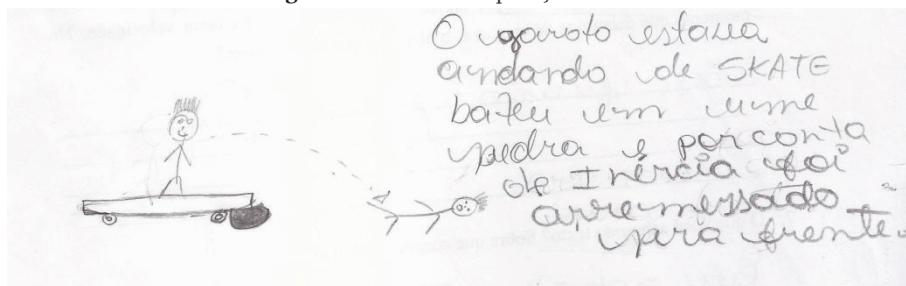 O garoto estava
andando de SKATE
bateu em uma
pedra e por conta
de Inércia foi
arremessado
para frente.